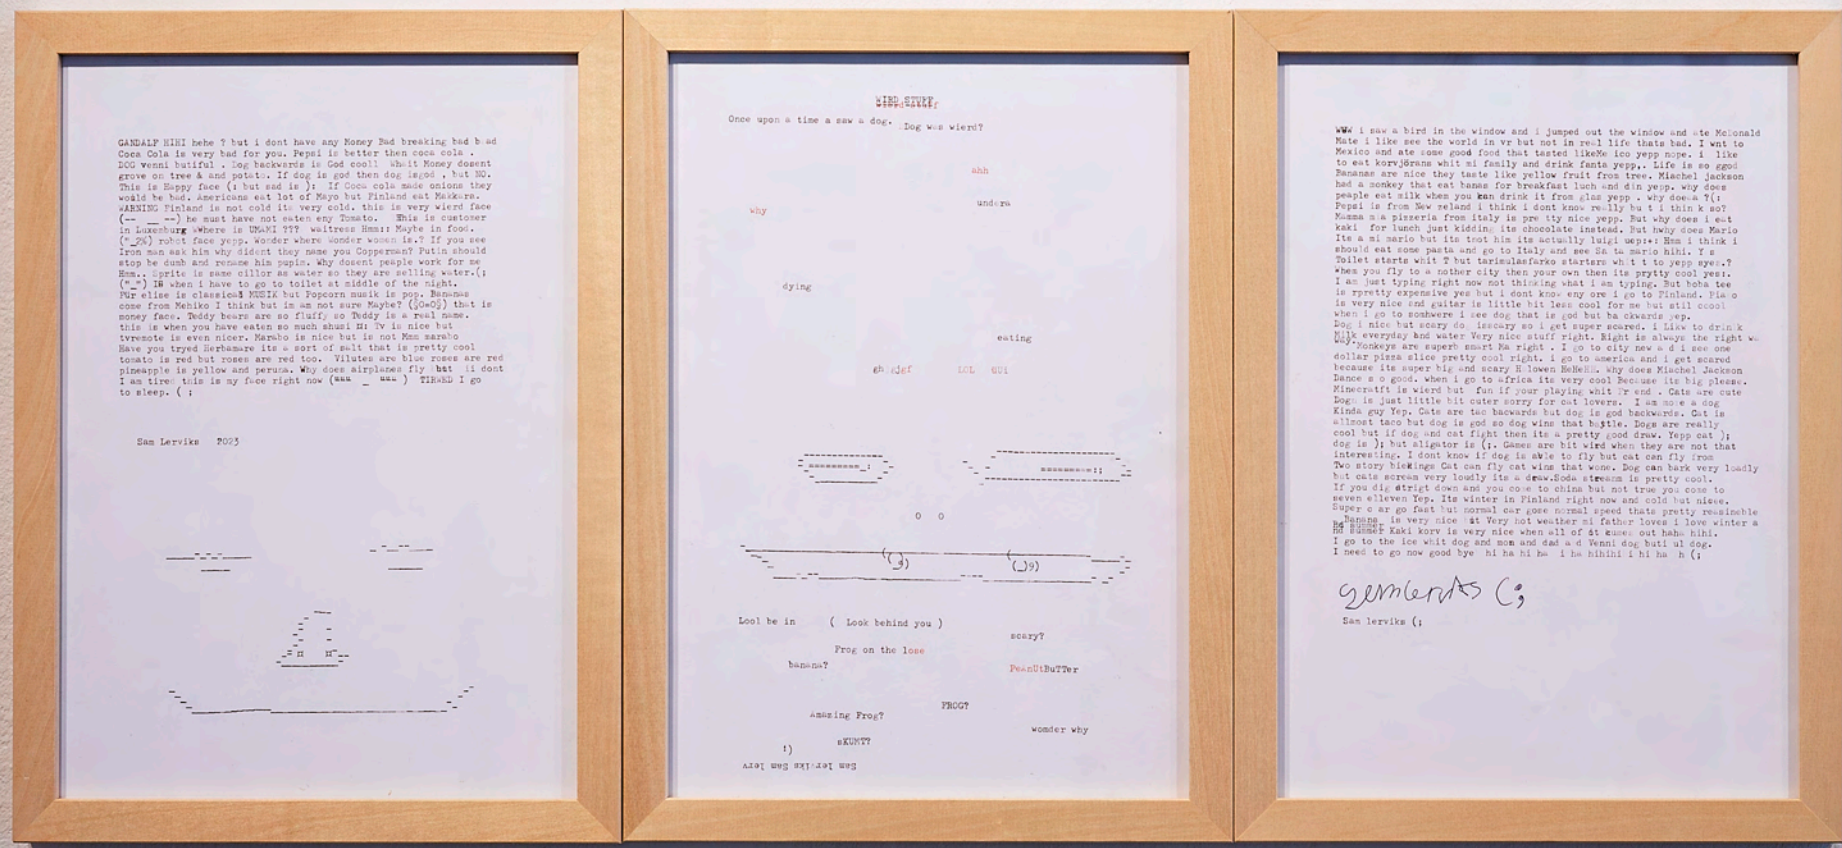 GANDALF HIHI hehe ? but i dont have any Money Bad breaking bad bad
Coca Cola is very bad for you. Pepsi is better then coca cola .
DOG venni butiful . Dog backwards is God cooll Whait Money dosent
grove on tree & and potato. If dog is god then dog isgod , but NO.
This is Happy face (: but sad is ): If Coca cola made onions they
would be bad. Americans eat lot of Mayo but Finland eat Makkara.
WARNING Finland is not cold its very cold. this is very wierd face
(-- __ --) he must have not eaten eny Tomato. This is customer
in Luxemburg WWhere is UMAMI ??? waitress Hmm:: Maybe in food.
("_2%) robot face yepp. Wonder where Wonder women is.? If you see
Iron man ask him why dident they name you Copperman? Putin should
stop be dumb and rename him pupin. Why dosent peaple work for me
Hmm.. Sprite is same cillor as water so they are selling water.(;
("_") IS when i have to go to toilet at middle of the night.
Für elise is classical MUSIK but Popcorn musik is pop. Bananas
come from Mehiko I think but im am not sure Maybe? that is
money face. Teddy bears are so fluffy so Teddy is a real name.
this is when you have eaten so much shusi ¤: Tv is nice but
tvremote is even nicer. Marabo is nice but is not Mmm marabo
Have you tryed Herbamare its a sort of salt that is pretty cool
tomato is red but roses are red too. Vilutes are blue roses are red
pineapple is yellow and peruna. Why does airplanes fly but ii dont
I am tired this is my face right now ( _ ) TIRWED I go
to sleep. ( ;
Sam Lerviks 2023
WIERD STUFF
Once upon a time a saw a dog.
Dog was wierd?
ahh
undera
why
dying
eating
LOL
Lool be in ( Look behind you )
scary?
Frog on the lose
banana?
PeanUtBuTTer
FROG?
Amazing Frog?
wonder why
sKUMT?
!)
Sam lerviks Sam lerv
WWW i saw a bird in the window and i jumped out the window and ate Mcdonald
Mate i like see the world in vr but not in real life thats bad. I wnt to
Mexico and ate some good food that tasted likeMe ico yepp nope. i like
to eat korvjörans whit mi family and drink fanta yepp,. Life is so ggod
Bananas are nice they taste like yellow fruit from tree. Miachel jackson
had a monkey that eat banas for breakfast luch and din yepp. why does
peaple eat milk when you kan drink it from glas yepp . why doesa ?(:
Pepsi is from New zeland i think i dont know really bu t i thin k so?
Mamma mia pizzeria from italy is pre tty nice yepp. But why does i eat
kaki for lunch just kidding its chocolate instead. But hwhy does Mario
Its a mi mario but its tnot him its actually luigi uep:+: Hmm i think i
should eat some pasta and go to Italy and see Sa ta mario hihi. Y s
Toilet starts whit T but tarimulasfarko startsrs whit t to yepp syes.?
When you fly to a nother city then your own then its prytty cool yes:.
I am just typing right now not thinking what i am typing. But boba tee
is rpretty expensive yes but i dont know eny ore i go to Finland. Pia o
is very nice snd guitar is little bit less cool for me but stil ccool
when i go to somhwere i see dog that is god but ba ckwards yep.
Dog i nice but scary do isscary so i get super scared. i Likw to drin k
Milk everyday and water Very nice stuff right. Right is always the right w
Day.Monkeys are superb smart Ma right . I go to city new a d i see one
dollar pizza slice pretty cool right. i go to america and i get scared
because its super big and scary H lowen HeHeHE. Why does Miachel Jackson
Dance s o good. when i go to africa its very cool Because its big please.
Minecratft is wierd but fun if your playing whit fr end . Cats are cute
Dogs is just little bit cuter sorry for cat lovers. I am more a dog
Kinda guy Yep. Cats are tac bacwards but dog is god backwards. Cat is
allmost taco but dog is god so dog wins that battle. Dogs are really
cool but if dog and cat fight then its a pretty good draw. Yepp cat );
dog is ); but aligator is (;. Games are bit wird when they are not that
interesting. I dont know if dog is able to fly but cat can fly from
Two story bieKings Cat can fly cat wins that wone. Dog can bark very loudly
but cats scream very loudly its a draw.Soda streanm is pretty cool.
If you dig strigt down and you come to china but not true you come to
seven elleven Yep. Its winter in Finland right now and cold but nicee.
Super c ar go fast but normal car gose normal speed thats pretty reasinoble
Banana is very nice at Very hot weather mi father loves i love winter a
nd summer Kaki korv is very nice when all of it cumes out haha hihi.
I go to the ice whit dog and mom and dad a d Venni dog buti ul dog.
I need to go now good bye hi ha hi ha i ha hihihi i hi ha h (;
Samlerviks (;
Sam lerviks (;